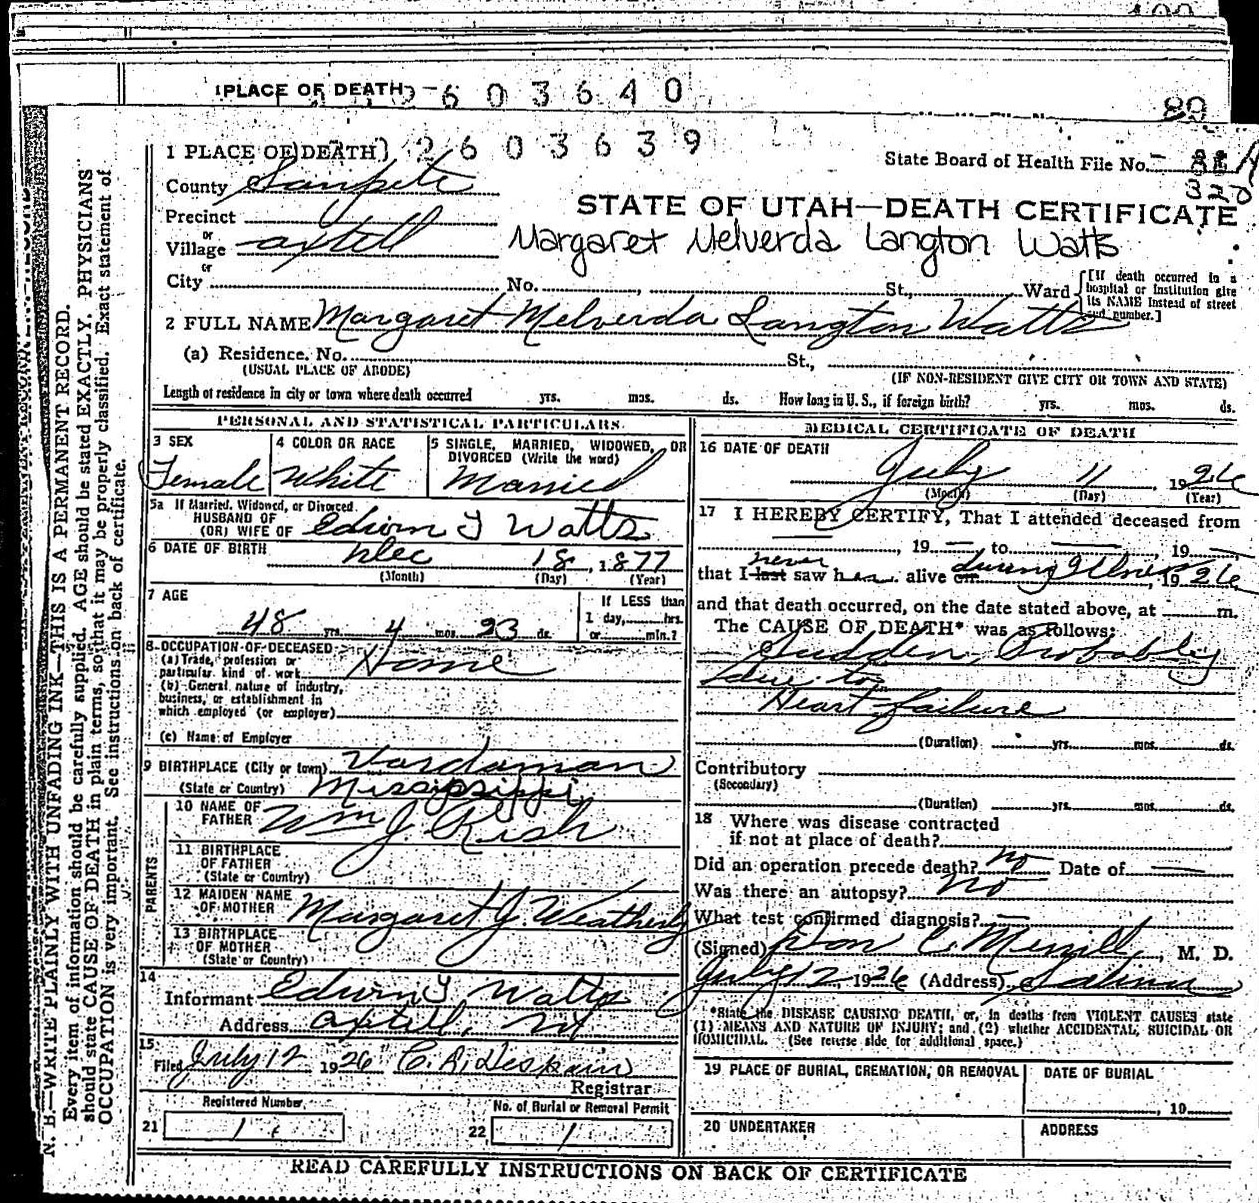 1 PLACE OF DEATH
2603640
89
1 PLACE OF DEATH 2603639
State Board of Health File No.
320
County Sanpete
STATE OF UTAH—DEATH CERTIFICATE
Precinct
or
Village axtell
Margaret Melverda Langton Watts
or
City No. , St., Ward [If death occurred in a hospital or institution give its NAME instead of street and number.]
2 FULL NAME Margaret Melverda Langton Watts
(a) Residence. No. St.,
(USUAL PLACE OF ABODE) (IF NON-RESIDENT GIVE CITY OR TOWN AND STATE)
Length of residence in city or town where death occurred yrs. mos. ds. How long in U. S., if foreign birth? yrs. mos. ds.
PERSONAL AND STATISTICAL PARTICULARS
3 SEX Female
4 COLOR OR RACE White
5 SINGLE, MARRIED, WIDOWED, OR
DIVORCED (Write the word)
Married
5a If Married, Widowed, or Divorced
HUSBAND OF
(OR) WIFE OF Edwin T Watts
6 DATE OF BIRTH Dec 18, 1877
(Month) (Day) (Year)
7 AGE
48 yrs. 4 mos. 23 ds.
If LESS than
1 day, hrs.
or min.?
8 OCCUPATION OF DECEASED
(a) Trade, profession or
particular kind of work Home
(b) General nature of industry,
business, or establishment in
which employed (or employer)
(c) Name of Employer
9 BIRTHPLACE (City or town) Vardaman
(State or Country) Mississippi
PARENTS
10 NAME OF
FATHER Wm J Rish
11 BIRTHPLACE
OF FATHER
(State or Country)
12 MAIDEN NAME
OF MOTHER Margaret J. Weatherly
13 BIRTHPLACE
OF MOTHER
(State or Country)
14
Informant Edwin T Watts
Address axtell, Ut
15
Filed July 12 1926 C. A. Deskain
Registrar
Registered Number
21 1
No. of Burial or Removal Permit
22 1
MEDICAL CERTIFICATE OF DEATH
16 DATE OF DEATH
July 11 1926
(Month) (Day) (Year)
17 I HEREBY CERTIFY, That I attended deceased from
, 19 — to — , 19 —
never
that I last saw her alive on during Illness, 1926
and that death occurred, on the date stated above, at m.
The CAUSE OF DEATH* was as follows:
Sudden, Probably
due to
Heart failure
(Duration) yrs. mos. ds.
Contributory
(Secondary)
(Duration) yrs. mos. ds.
18 Where was disease contracted
if not at place of death?
Did an operation precede death? no Date of —
Was there an autopsy? no
What test confirmed diagnosis? —
(Signed) Don C. Merrill, M. D.
July 12 1926 (Address) Salina
*State the DISEASE CAUSING DEATH, or, in deaths from VIOLENT CAUSES state
(1) MEANS AND NATURE OF INJURY; and (2) whether ACCIDENTAL, SUICIDAL OR
HOMICIDAL. (See reverse side for additional space.)
19 PLACE OF BURIAL, CREMATION, OR REMOVAL
DATE OF BURIAL
, 19
20 UNDERTAKER
ADDRESS
READ CAREFULLY INSTRUCTIONS ON BACK OF CERTIFICATE
N. B.—WRITE PLAINLY WITH UNFADING INK—THIS IS A PERMANENT RECORD.
Every item of information should be carefully supplied. AGE should be stated EXACTLY. PHYSICIANS
should state CAUSE OF DEATH in plain terms, so that it may be properly classified. Exact statement of
OCCUPATION is very important. See instructions on back of certificate.